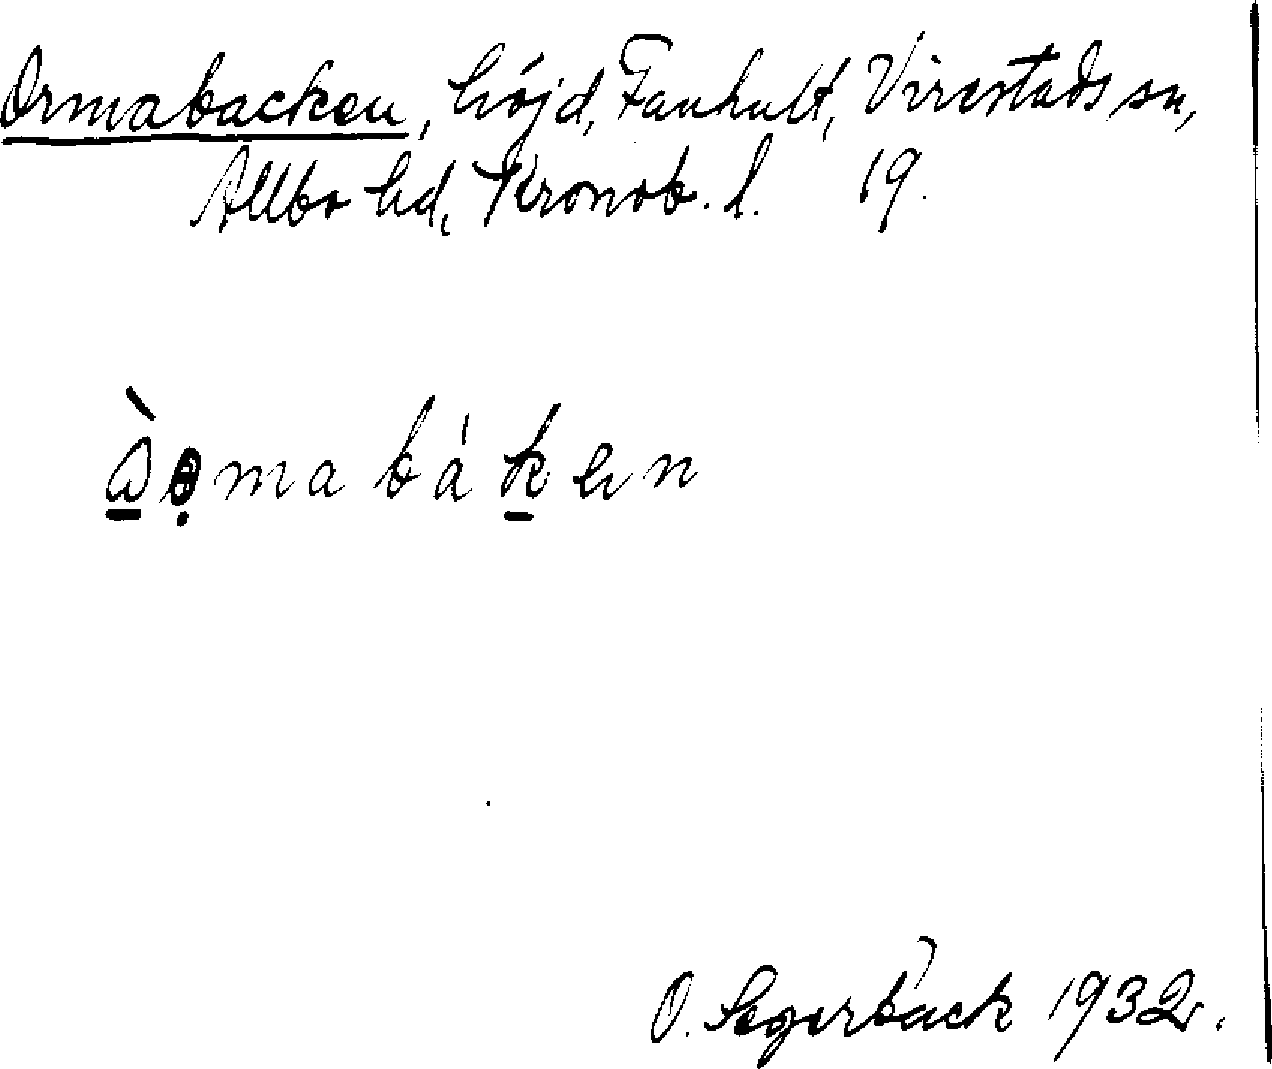 Ormabacken, höjd, Fanhult, Virestads sn,
Allbo hd, Kronob. l. 19.
O. Segerbäck 1932.